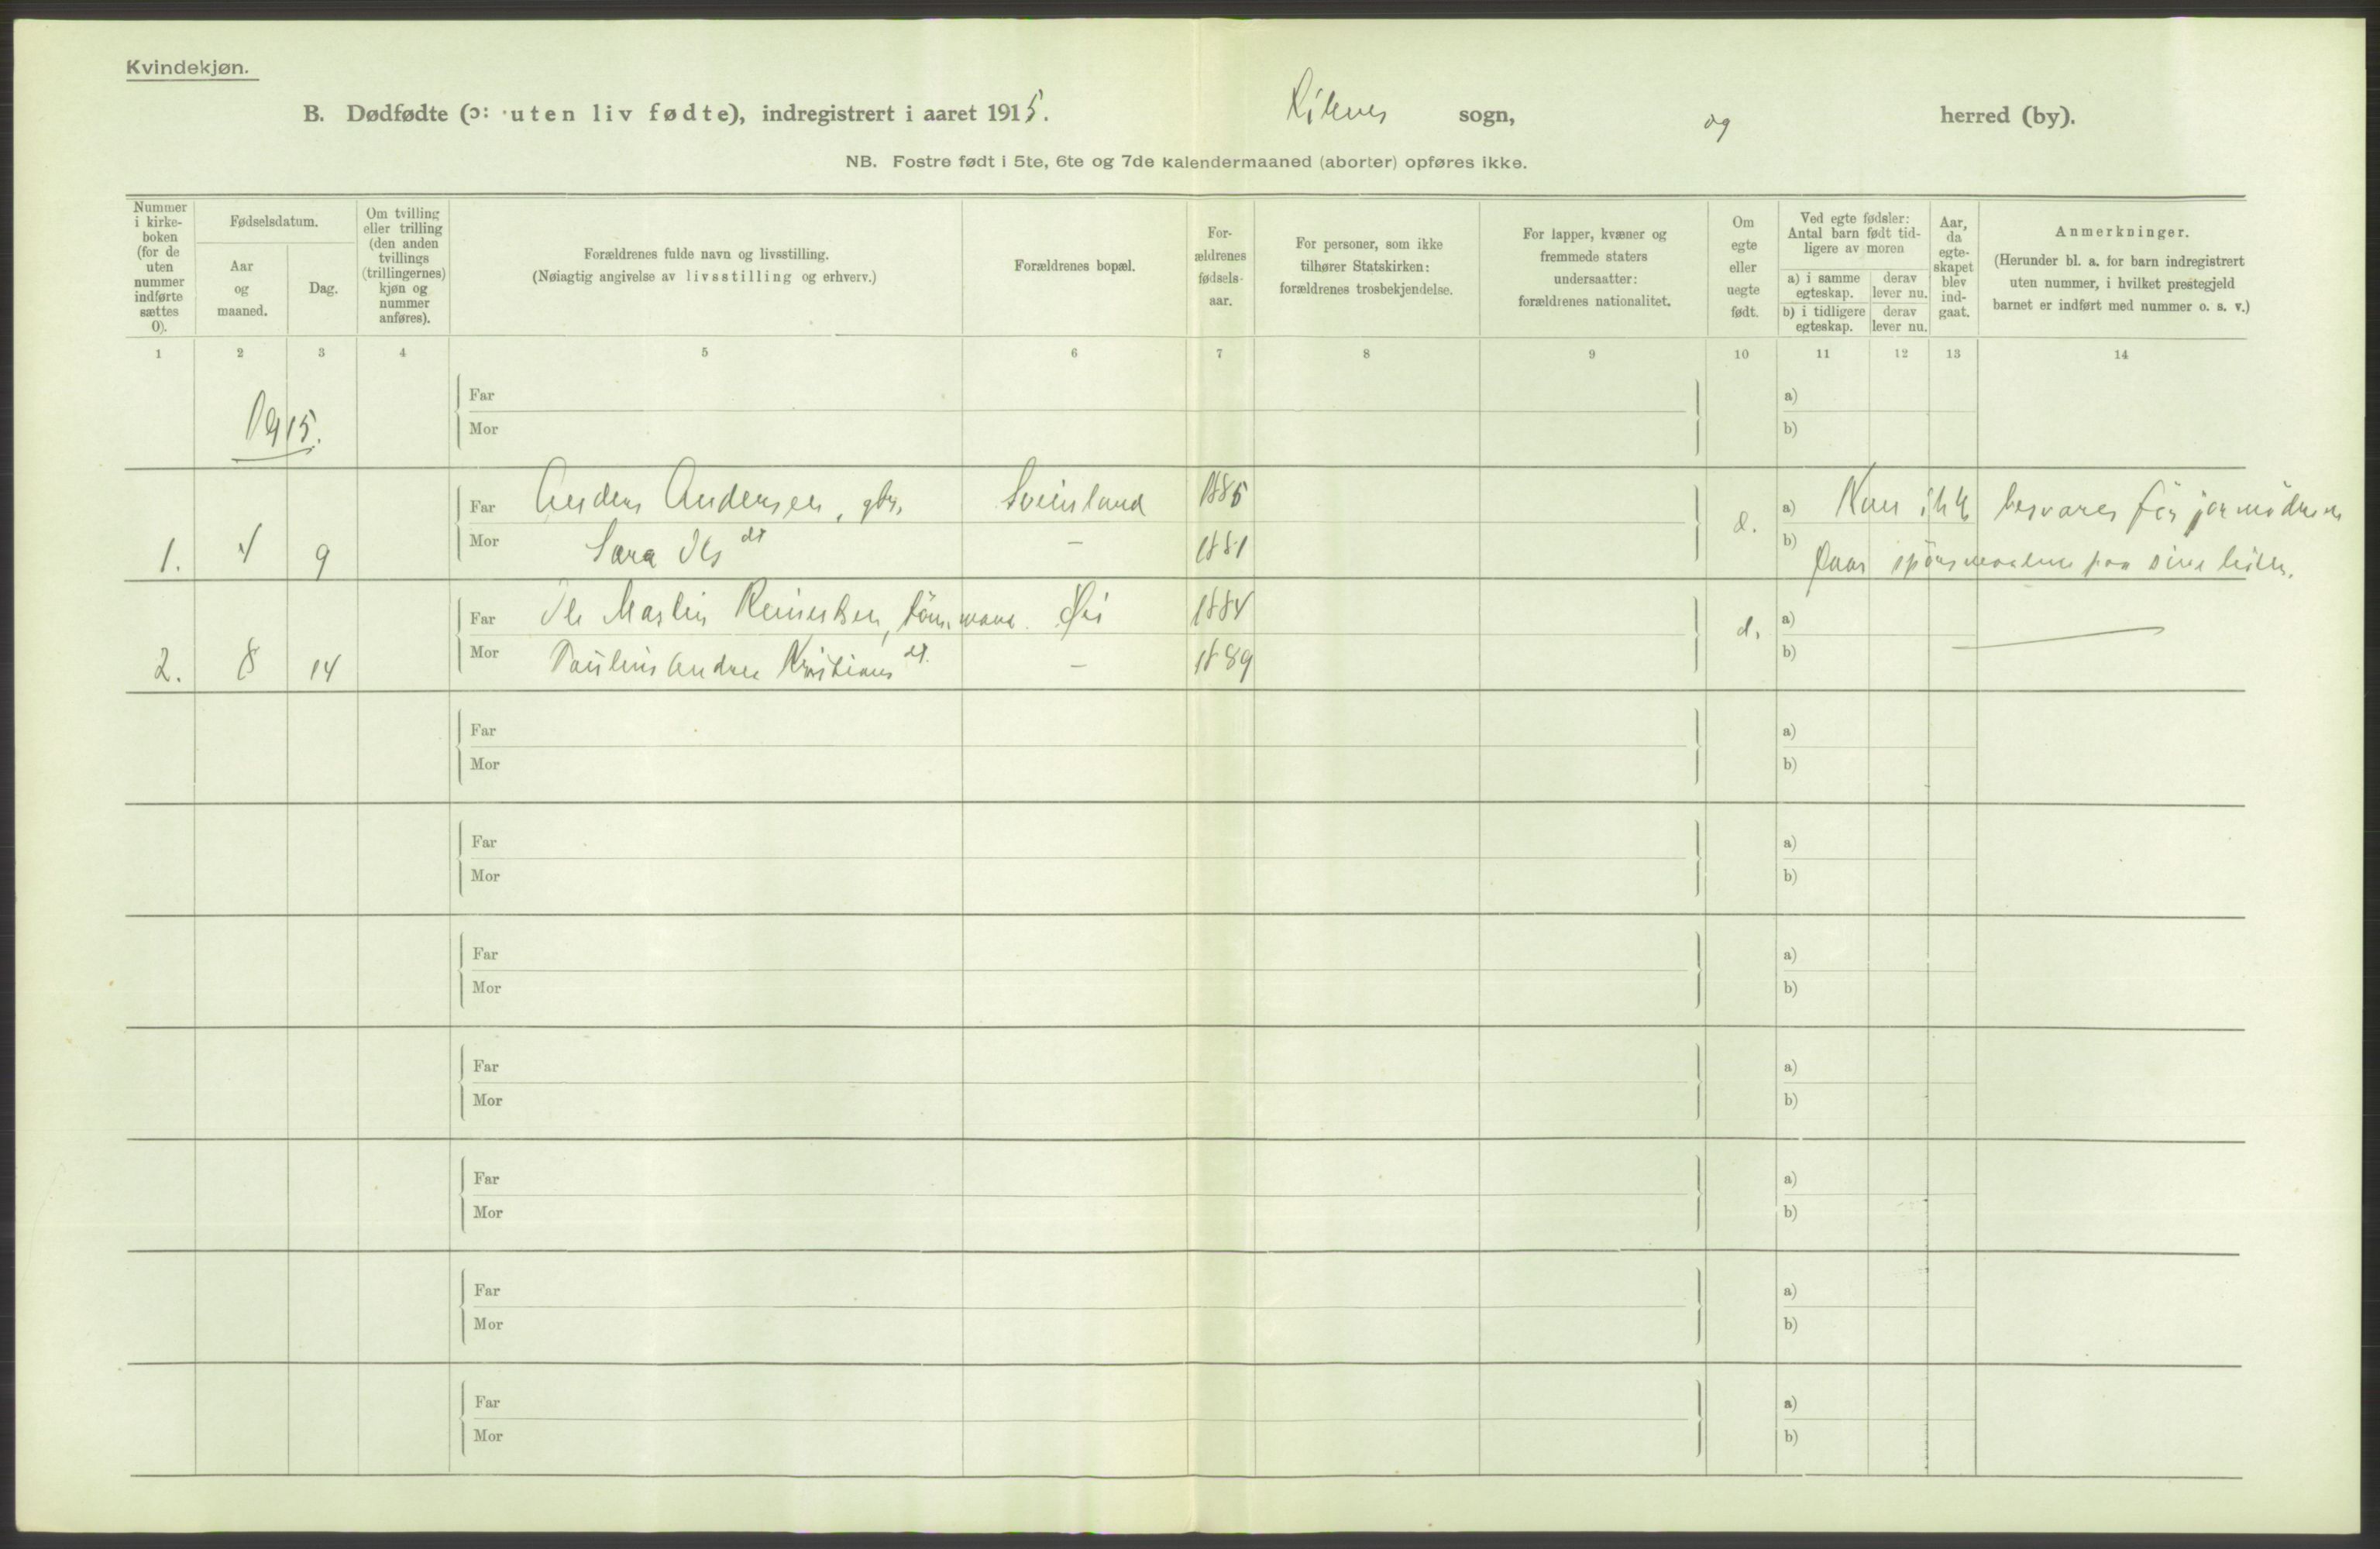 Kvindekjøn.
B. Dødfødte (ɔ: uten liv fødte), indregistrert i aaret 1915. sogn, og herred (by).
NB. Fostre født i 5te, 6te og 7de kalendermaaned (aborter) opføres ikke.
Nummer i kirke-
boken
(for de
uten
nummer
indførte
sættes
0).
Fødselsdatum.
Aar
og
maaned.
Dag.
Om tvilling
eller trilling
(den anden
tvillings
(trillingernes)
kjøn og
nummer
anføres).
Forældrenes fulde navn og livsstilling.
(Nøiagtig angivelse av livsstilling og erhverv.)
Forældrenes bopæl.
For-
ældrenes
fødsels-
aar.
For personer, som ikke
tilhører Statskirken:
forældrenes trosbekjendelse.
For lapper, kvæner og
fremmede staters
undersaatter:
forældrenes nationalitet.
Om
egte
eller
uegte
født.
Ved egte fødsler:
Antal barn født tid-
ligere av moren
a) i samme
egteskap.
derav
lever nu.
b) i tidligere
egteskap.
derav
lever nu.
Aar,
da
egte-
skapet
blev
ind-
gaat.
Anmerkninger.
(Herunder bl. a. for barn indregistrert
uten nummer, i hvilket prestegjeld
barnet er indført med nummer o. s. v.)
1 2 3 4 5 6 7 8 9 10 11 12 13 14
1915.
Far a)
Mor b)
Far Anders Andersen, gbr. Sveinsland 1885 a) Kan ikke besvares før jormødrene
1. 4 9 Mor Sara Ols dt — 1881 b)
faar spørsmaalene paa sine lister.
Far Ole Martin Reinertsen, tømmermand. Øi 1884 d. a)
2. 8 14 Mor Andrea Kristians dt. — 1889 b) —
Far a)
Mor b)
Far a)
Mor b)
Far a)
Mor b)
Far a)
Mor b)
Far a)
Mor b)
Far a)
Mor b)
Far a)
Mor b)